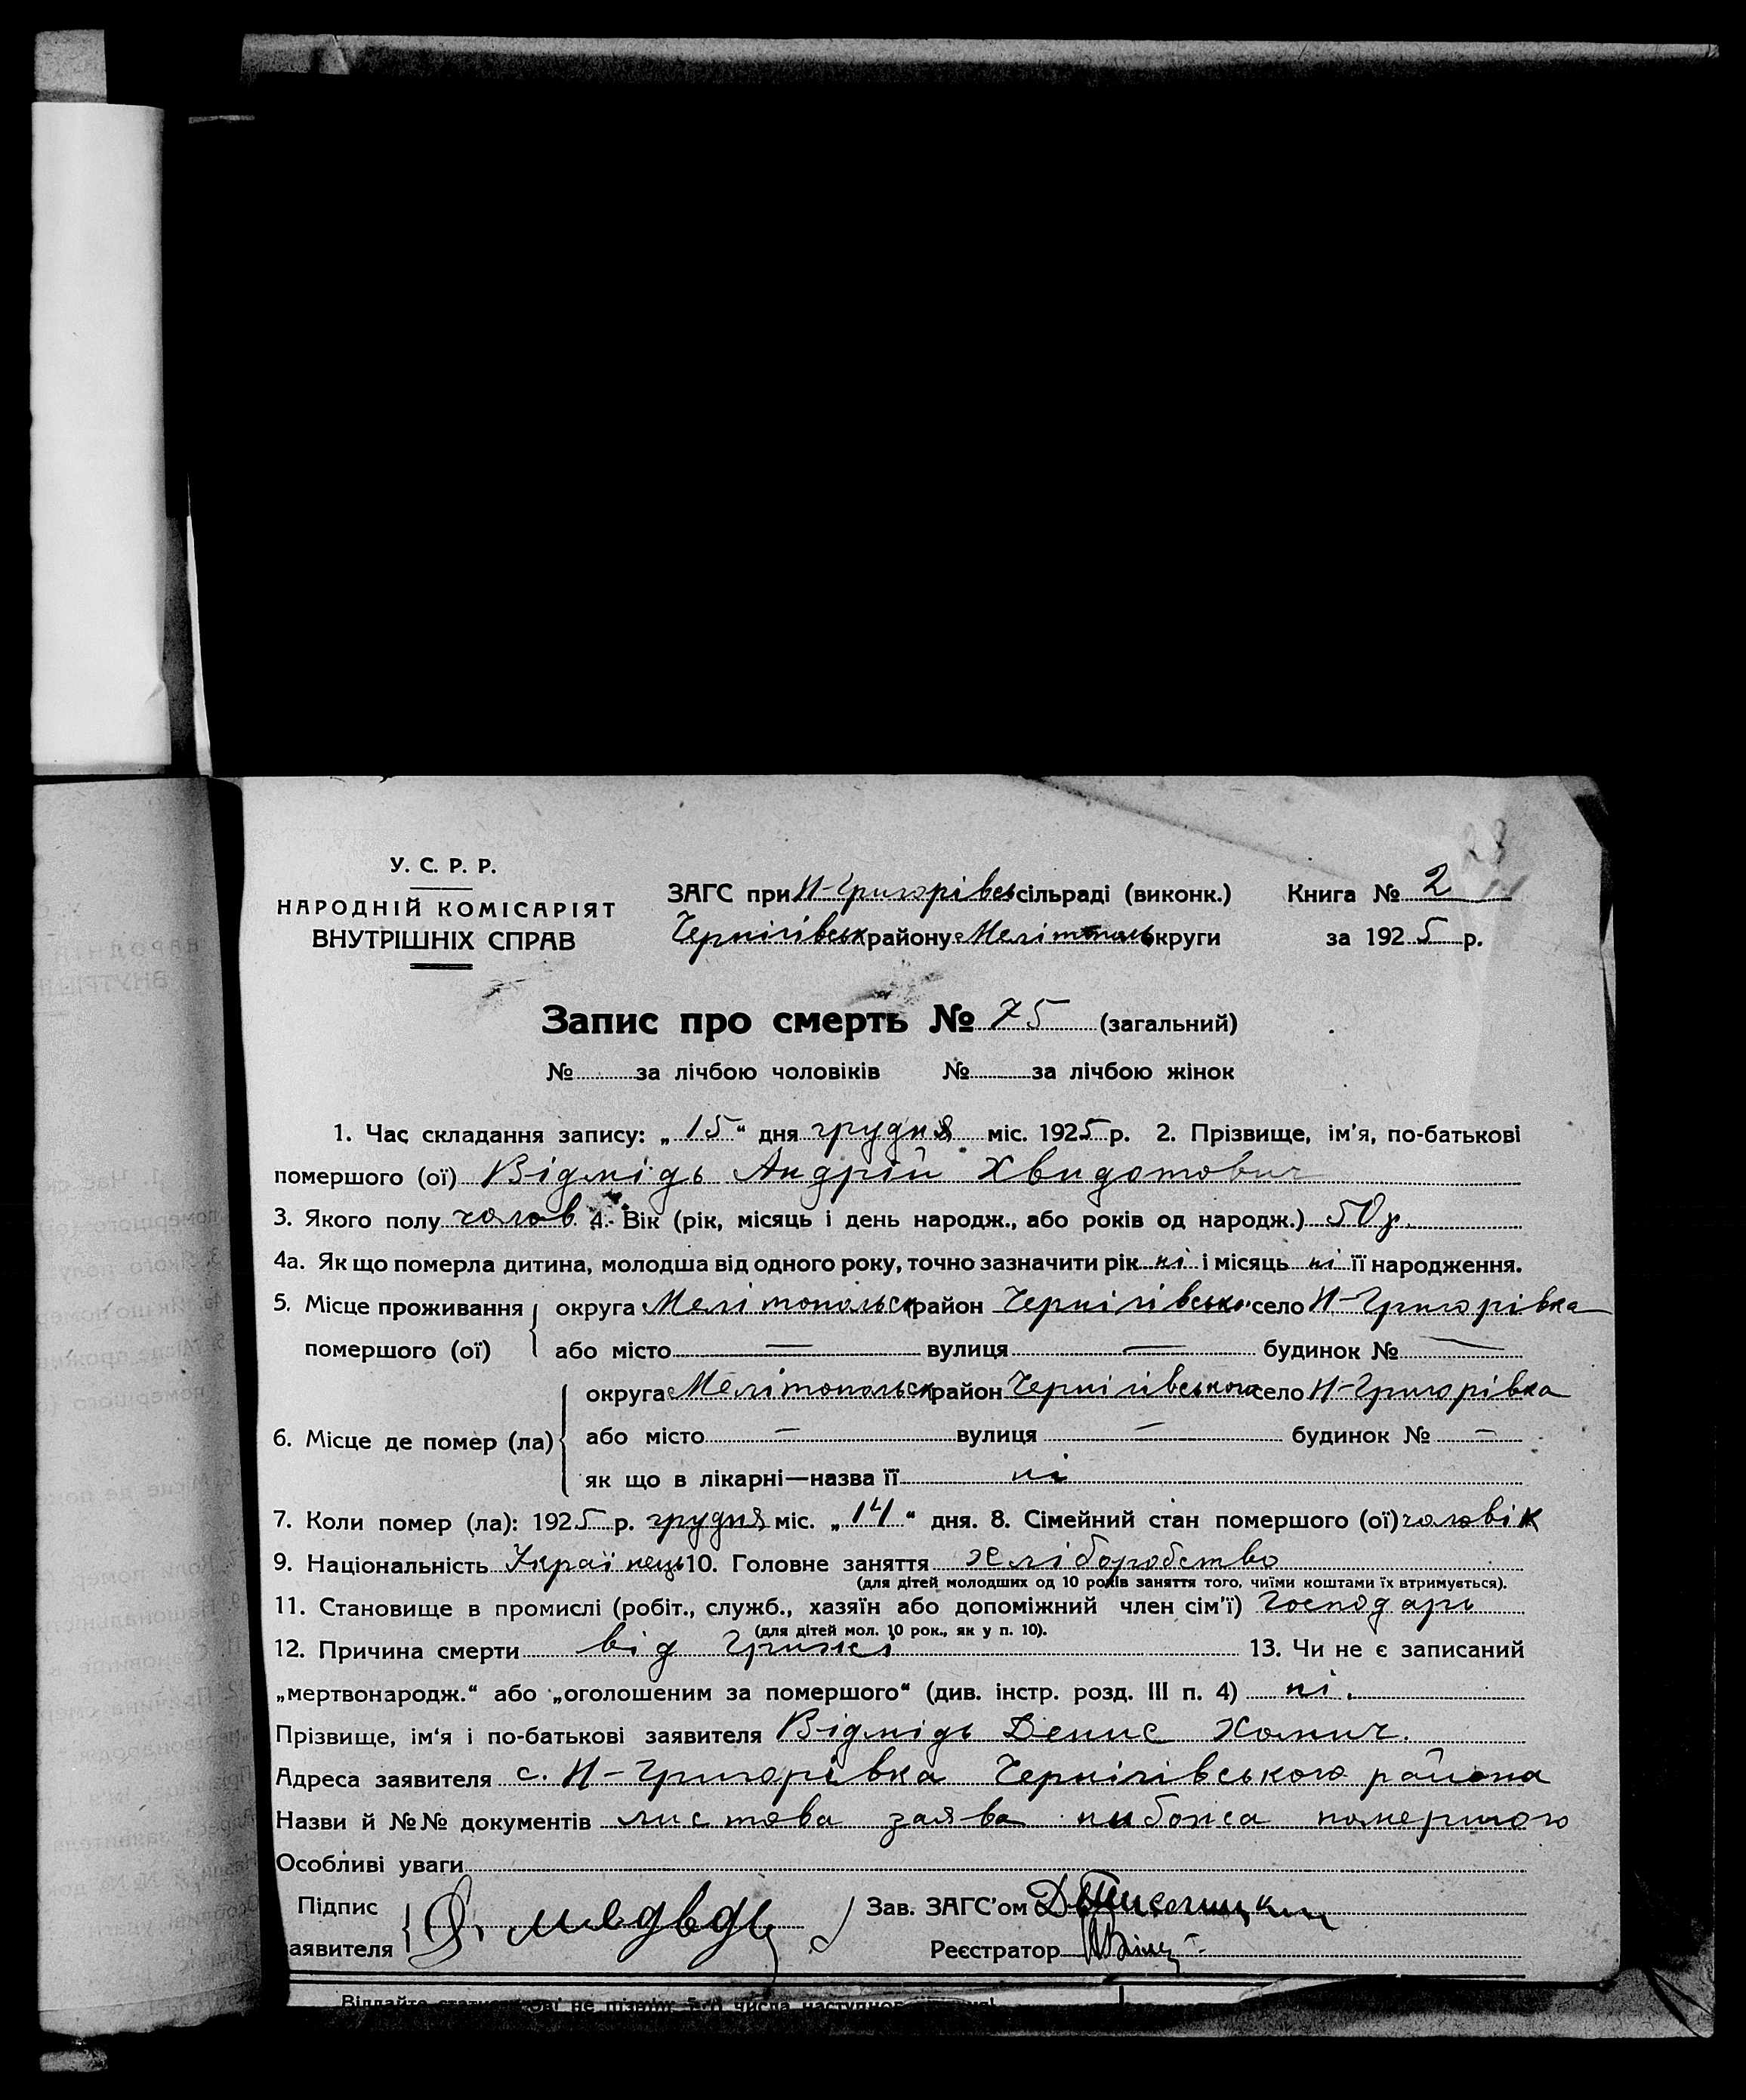 У. С. Р. Р.
НАРОДНІЙ КОМІСАРІЯТ
ВНУТРІШНІХ СПРАВ
ЗАГС при Н-Григорівсь сільраді (виконк.) Книга № 2
Чернігівськ району Мелітополь округи за 1925 р.
Запис про смерть № 75 (загальний)
№ за лічбою чоловіків № за лічбою жінок
1. Час складання запису: „15“ дня грудня міс. 1925 р. 2. Прізвище, ім'я, по-батькові
помершого (ої) Відмідь Андрій Хвидотович
3. Якого полу чолов. 4. Вік (рік, місяць і день народж., або років од народж.) 50 р.
4а. Як що померла дитина, молодша від одного року, точно зазначити рік ні і місяць ні її народження.
5. Місце проживання округа Мелітопольськ район Чернігівсько село Н-Григорівка
помершого (ої) або місто — вулиця — будинок № —
округа Мелітопольськ район Чернігівського село Н-Григорівка
6. Місце де помер (ла) або місто — вулиця — будинок № —
як що в лікарні—назва її ні
7. Коли помер (ла): 1925 р. грудня міс. „14“ дня. 8. Сімейний стан помершого (ої) чоловік
9. Національність Українець 10. Головне заняття хліборобство
(для дітей молодших од 10 років заняття того, чиїми коштами їх втримується).
11. Становище в промислі (робіт., служб., хазяїн або допоміжний член сім'ї) Господарь
(для дітей мол. 10 рок., як у п. 10).
12. Причина смерти від грижі 13. Чи не є записаний
„мертвонародж.“ або „оголошеним за помершого“ (див. інстр. розд. III п. 4) ні.
Прізвище, ім'я і по-батькові заявителя Відмідь Денис Хомич.
Адреса заявителя с. Н-Григорівка Чернігівського района
Назви й №№ документів листова заява нибожа помершого
Особливі уваги
Підпис Д. Медведь Зав. ЗАГС'ом
аявителя Реєстратор